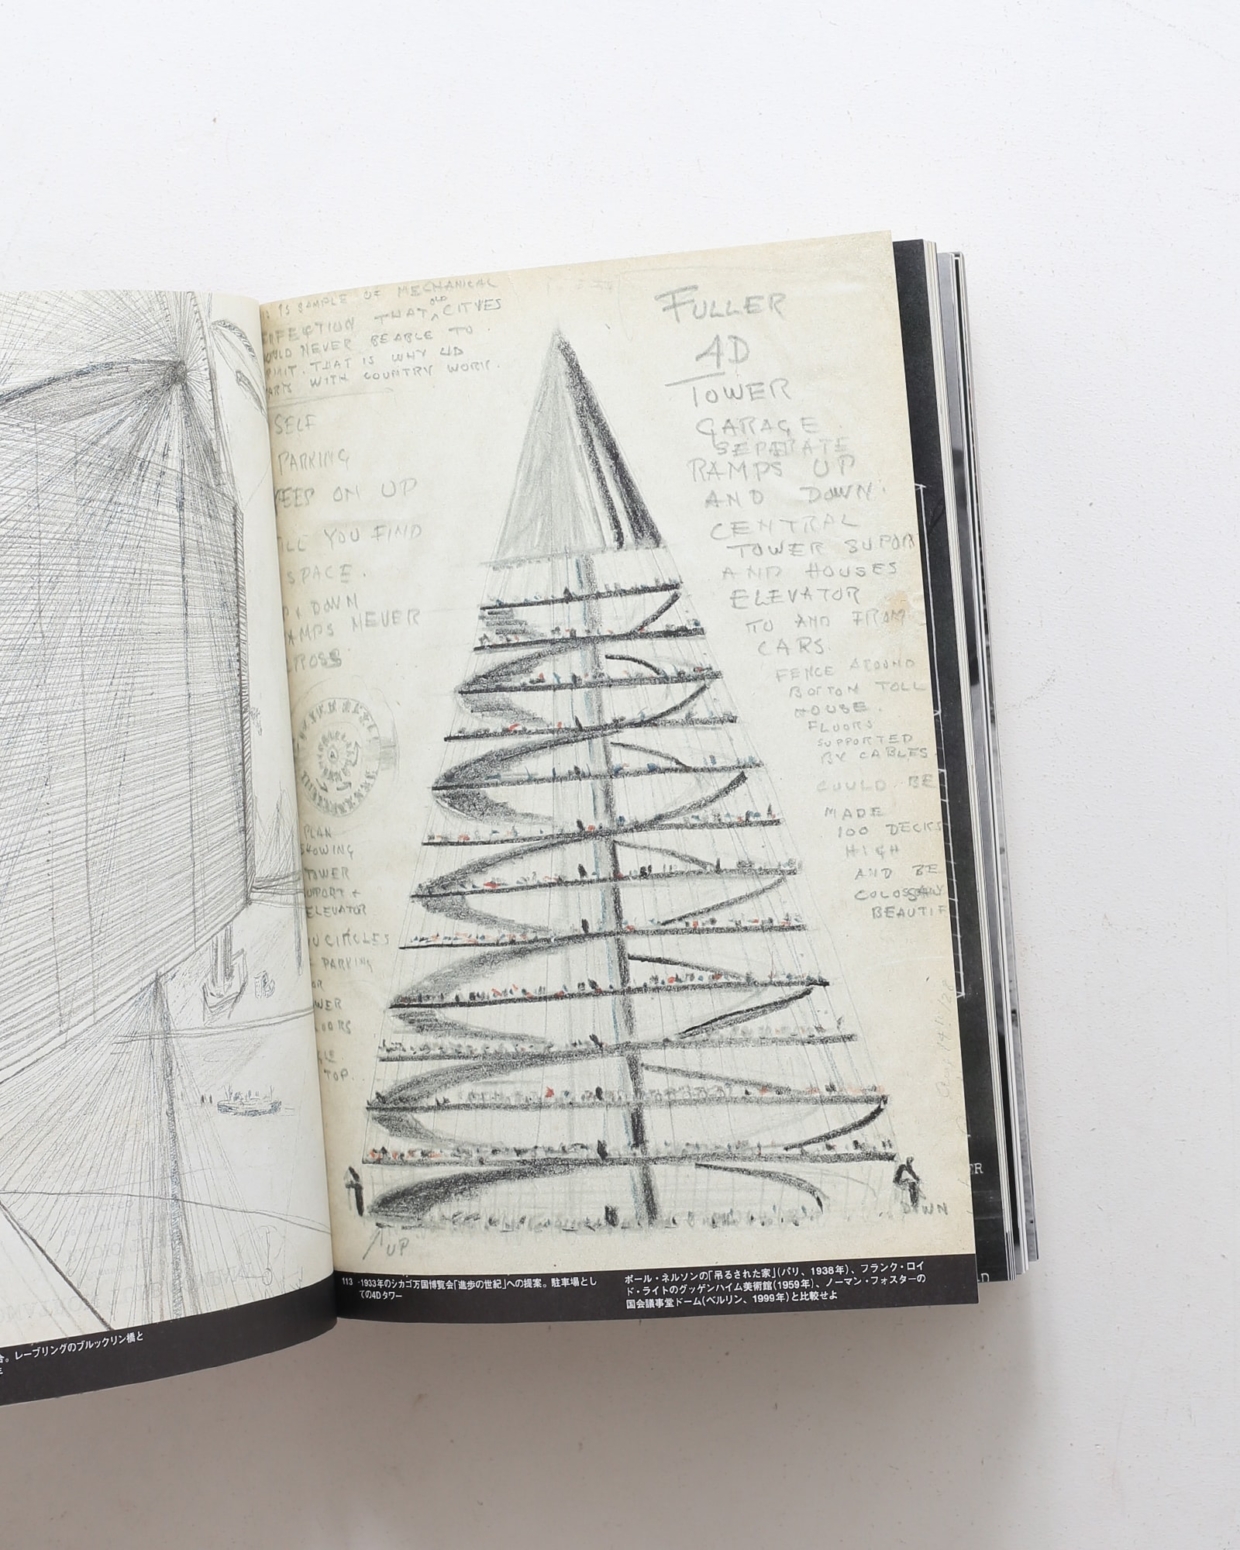 レーブリングのブルックリン橋と
SAMPLE OF MECHANICAL
THAT OLD CITYES
NEVER BEABLE TO
THAT IS WHY 4D
WITH COUNTRY WORK.
SELF
PARKING
KEEP ON UP
YOU FIND
SPACE.
DOWN
RAMPS NEVER
CROSS
PLAN
SHOWING
TOWER
SUPPORT +
ELEVATOR
CIRCLES
PARKING
TOP.
UP
FULLER
4D
TOWER
GARAGE
SEPERATE
RAMPS UP
AND DOWN.
CENTRAL
TOWER SUPOR
AND HOUSES
ELEVATOR
TO AND FROM
CARS.
FENCE AROUND
BOTTOM TOLL
HOUSE.
FLOORS
SUPPORTED
BY CABLES
COULD BE
MADE
100 DECKS
HIGH
AND BE
COLOSSALY
BEAUTIF
DOWN
113 ·1933年のシカゴ万国博覧会「進歩の世紀」への提案。駐車場とし
ての4Dタワー
ポール・ネルソンの「吊るされた家」(パリ、1938年)、フランク・ロイ
ド・ライトのグッゲンハイム美術館(1959年)、ノーマン・フォスターの
国会議事堂ドーム(ベルリン、1999年)と比較せよ